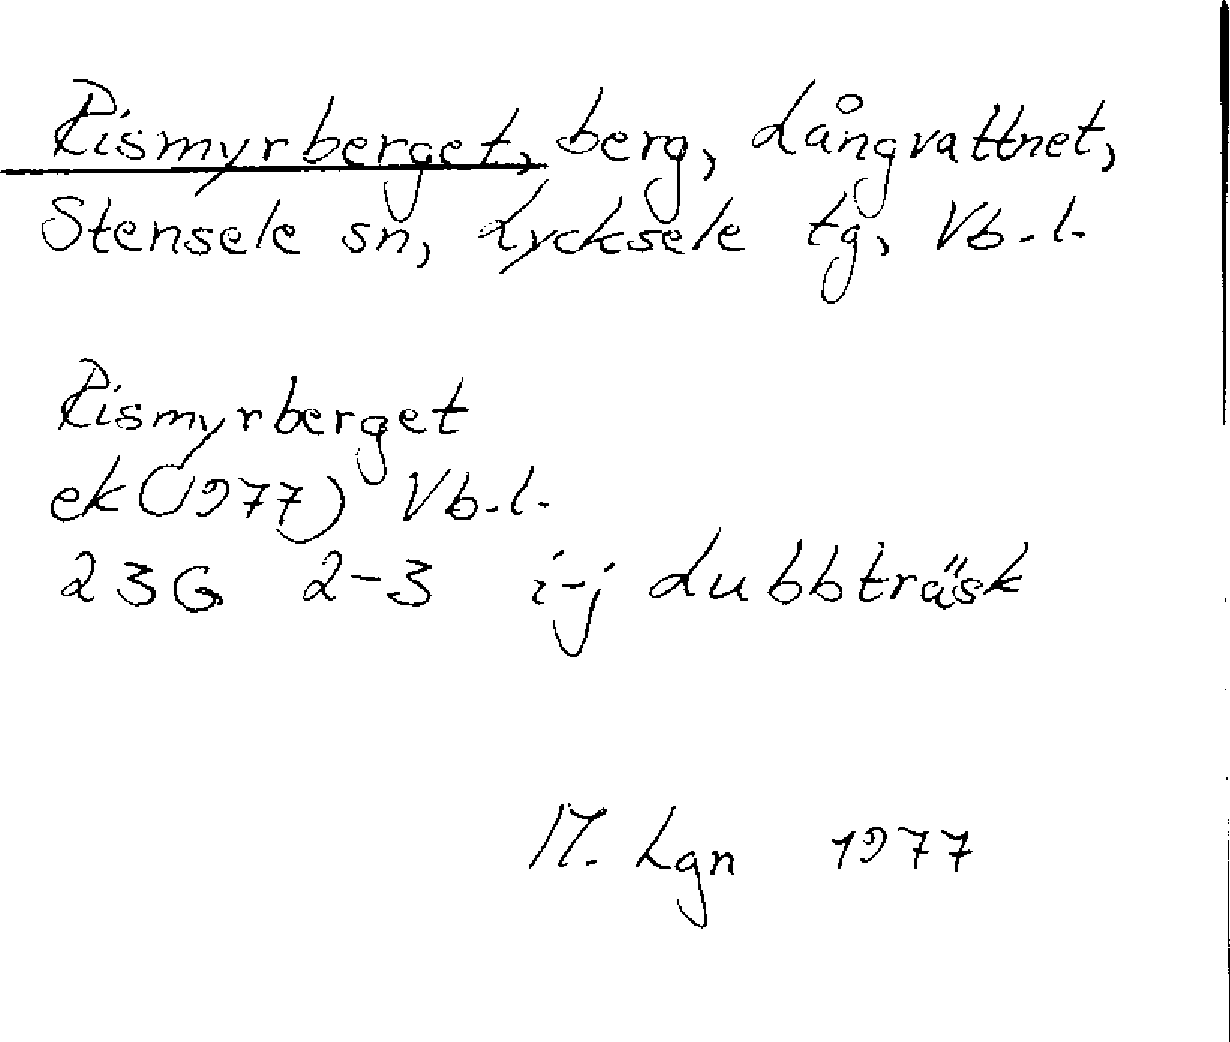 Rismyrberget, berg, Långvattnet,
Stensele sn, Lycksele tg, Vb.l.
Rismyrberget
ek(1977) Vb.l.
23G 2-3 i-j Lubbträsk
M. Lgn 1977